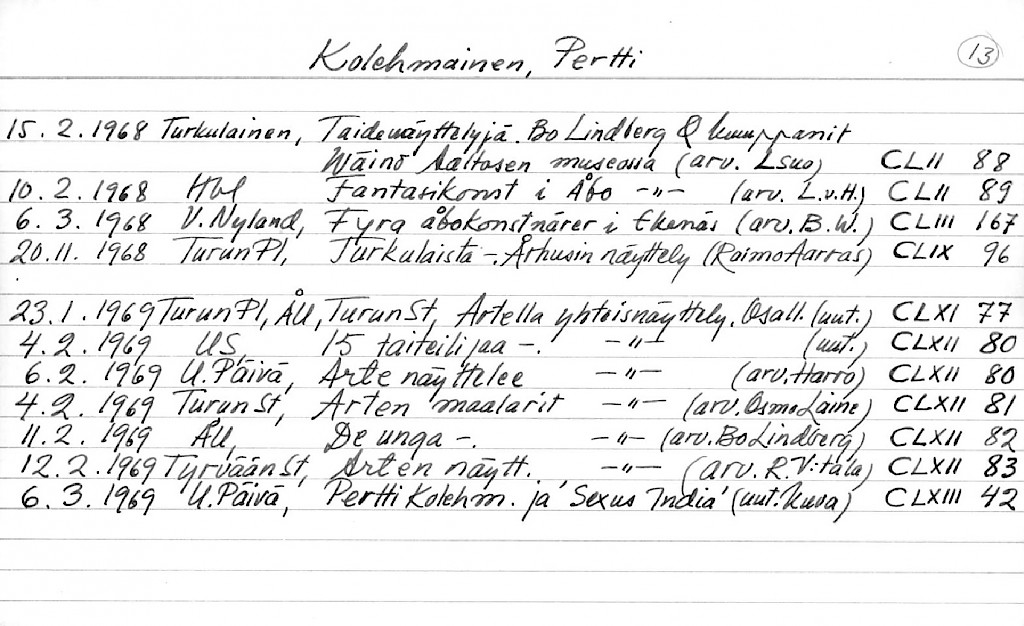 Kolehmainen, Pertti 13
15.2.1968 Turkulainen, Taidenäyttelyjä. Bo Lindberg & kumppanit
Wäinö Aaltosen museossa (arv. LSuo) CLII 88
10.2.1968 Hbl Fantasikonst i Åbo -"- (arv. L.v.H.) CLII 89
6.3.1968 V.Nyland, Fyra åbokonstnärer i Ekenäs (arv. B.W.) CLIII 167
20.11.1968 TurunPl, Turkulaista -. Århusin näyttely (Raimo Aarras) CLIX 96
23.1.1969 TurunPl, ÅU, TurunSt, Artella yhteisnäyttely. Osall. (uut.) CLXI 77
4.2.1969 US, 15 taiteilijaa -. -"- (uut.) CLXII 80
6.2.1969 U.Päivä, Arte näyttelee -"- (arv. Harro) CLXII 80
4.2.1969 TurunSt, Arten maalarit -"- (arv. Osmo Laine) CLXII 81
11.2.1969 ÅU, De unga -. -"- (arv. Bo Lindberg) CLXII 82
12.2.1969 TyrväänSt, Arten näytt. -"- (arv. R.V:tala) CLXII 83
6.3.1969 U.Päivä, Pertti Kolehm. ja 'Sexus India' (uut. kuva) CLXIII 42